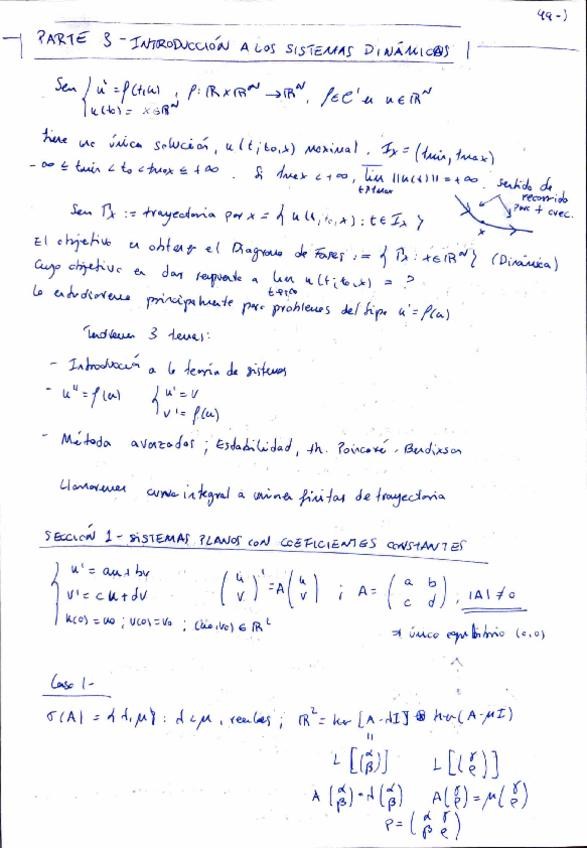 49-)
PARTE 3 - INTRODUCCIÓN A LOS SISTEMAS DINÁMICOS
Sea { u' = f(t,u) , f: ℝ x ℝᴺ → ℝᴺ, f ∈ C' en u ∈ ℝᴺ
u(t0) = x ∈ ℝᴺ
tiene una única solución, u(t; t0, x) maximal. Ix = (tmin, tmax)
-∞ ≤ tmin < t0 < tmax ≤ +∞. Si tmax < +∞, lim ||u(t)|| = +∞.
t↑tmax
sentido de
recorrido
para t crec.
x
Sea Γx := trayectoria por x = { u(t; t0, x) : t ∈ Ix }
El objetivo es obtener el Diagrama de Fases := { Γx : x ∈ ℝᴺ } (Dinámica)
Cuyo objetivo es dar respuesta a lim u(t; t0, x) = ?
t↑+∞
Lo estudiaremos principalmente para problemas del tipo u' = f(u)
3 temas:
- Introducción a la teoría de sistemas
- u'' = f(u) { u' = v
v' = f(u)
- Métodos avanzados; Estabilidad, th. Poincaré - Bendixson
Llamaremos curva integral a uniones finitas de trayectoria
SECCIÓN 1 - SISTEMAS PLANOS CON COEFICIENTES CONSTANTES
{ u' = au + bv
v' = cu + dv
u(0) = u0 ; v(0) = v0 ; (u0, v0) ∈ ℝ²
(u v)' = A (u v) ; A = (a b c d) , |A| ≠ 0
⇒ único equilibrio (0,0)
Caso 1-
σ(A) = { λ, μ } : λ < μ, reales ; ℝ² = ker [A - λI] ⊕ ker (A - μI)
L [(α β)] L [(γ ρ)]
A (α β) = λ (α β) A (γ ρ) = μ (γ ρ)
P = (α γ β ρ)